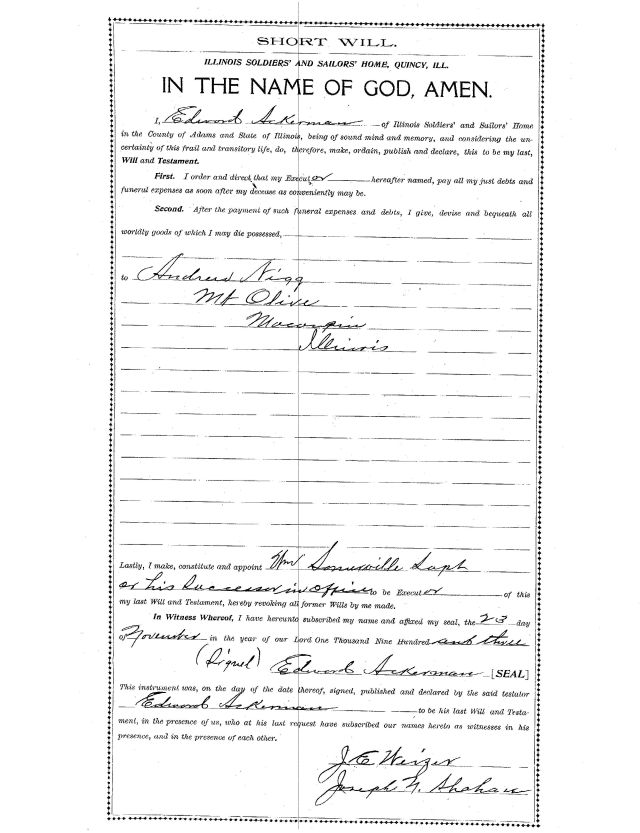 SHORT WILL.
ILLINOIS SOLDIERS' AND SAILORS' HOME, QUINCY, ILL.
IN THE NAME OF GOD, AMEN.
I, Edward Ackerman of Illinois Soldiers' and Sailors' Home
in the County of Adams and State of Illinois, being of sound mind and memory, and considering the un-
certainty of this frail and transitory life, do, therefore, make, ordain, publish and declare, this to be my last,
Will and Testament.
First. I order and direct that my Executor hereafter named, pay all my just debts and
funeral expenses as soon after my decease as conveniently may be.
Second. After the payment of such funeral expenses and debts, I give, devise and bequeath all
worldly goods of which I may die possessed,
to Andrew Nigg
Mt Olive
Macoupin
Illinois
Lastly, I make, constitute and appoint Wm Somerville Supt
or his Successor in office to be Executor of this
my last Will and Testament, hereby revoking all former Wills by me made.
In Witness Whereof, I have hereunto subscribed my name and affixed my seal, the 23 day
of November in the year of our Lord One Thousand Nine Hundred and three
(Signed) Edward Ackerman [SEAL]
This instrument was, on the day of the date thereof, signed, published and declared by the said testator
Edward Ackerman to be his last Will and Testa-
ment, in the presence of us, who at his last request have subscribed our names hereto as witnesses in his
presence, and in the presence of each other.
J. E.
Joseph